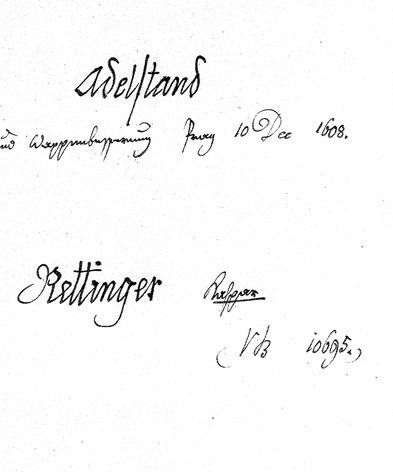 Adelstand
und Wappenbesserung Prag 10 Dec 1608.
Rettinger Kaspar
(VB 10695.)